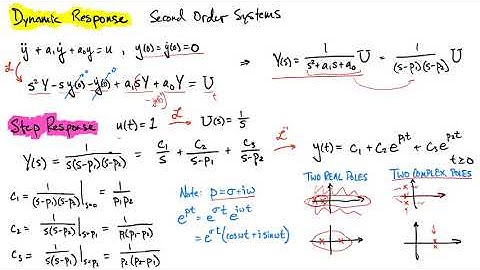 Dynamic Response Second Order Systems
ÿ + a₁ẏ + a₀y = u , y(0) = ẏ(0) = 0 ⇒ Y(s) = 1/(s²+a₁s+a₀) U = 1/((s-p₁)(s-p₂)) U
ℒ s²Y - sy(0) - ẏ(0) + a₁sY + a₀Y = U
-y(0)
Step Response u(t) = 1 ℒ U(s) = 1/s
Y(s) = 1/(s(s-p₁)(s-p₂)) = C₁/s + C₂/(s-p₁) + C₃/(s-p₂) ℒ⁻¹ y(t) = C₁ + C₂e^(p₁t) + C₃e^(p₂t) t≥0
C₁ = 1/((s-p₁)(s-p₂))|s=0 = 1/(p₁p₂)
C₂ = 1/(s(s-p₂))|s=p₁ = 1/(p₁(p₁-p₂))
C₃ = 1/(s(s-p₁))|s=p₂ = 1/(p₂(p₂-p₁))
Note: p = σ + iω
e^(pt) = e^(σt) e^(iωt)
= e^(σt) (cosωt + i sinωt)
TWO REAL POLES
TWO COMPLEX POLES